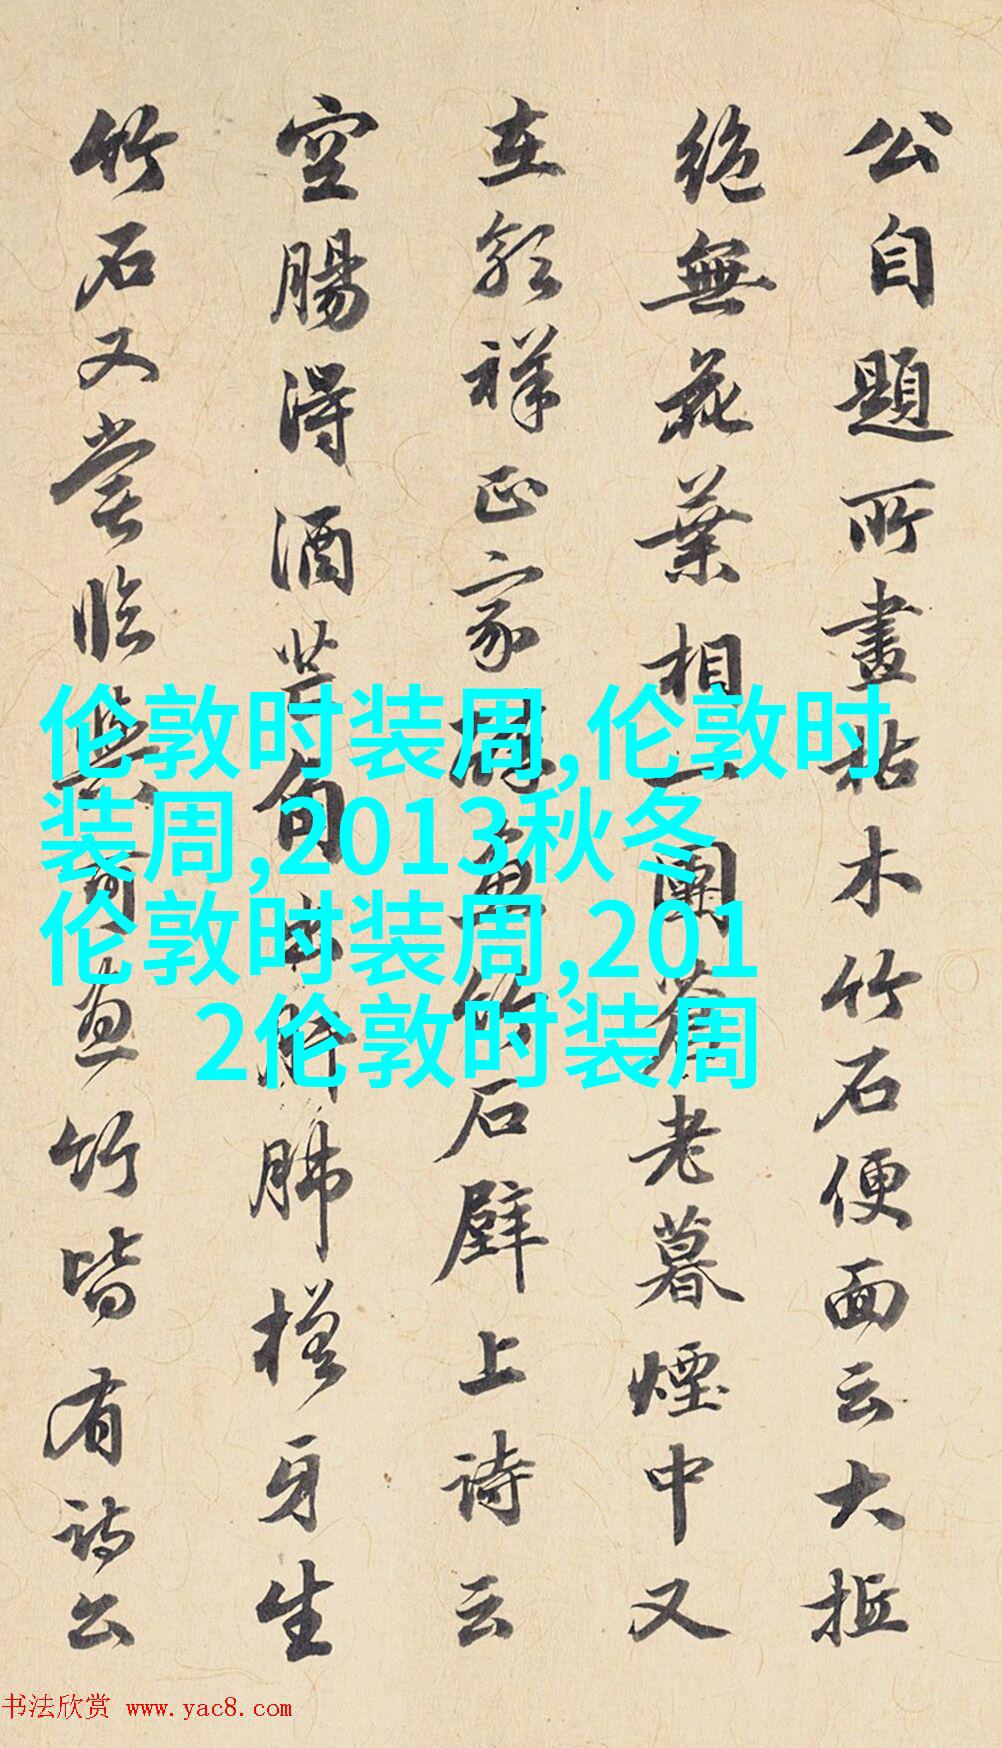 公自題所畫枯木竹石便面云大抵
絶無花葉相一團蒼老暮煙中又
在郭祥正家醉畫竹石壁上詩云
空腸得酒芒角出肝肺槎牙生
竹石又嘗臨與可畫竹皆有詩公
伦敦时装周,伦敦时
装周,2013秋冬
伦敦时装周,201
2伦敦时装周
书法欣赏 www.yac8.com